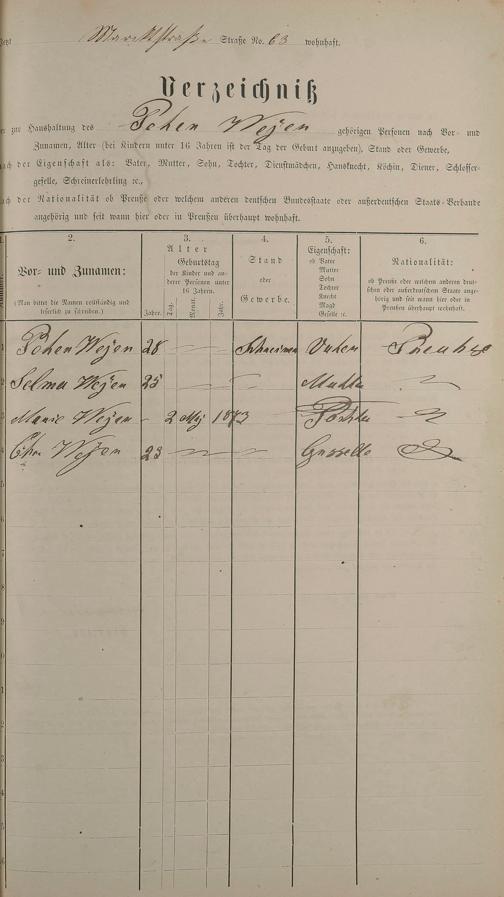 Marktstraße Straße No. 63 wohnhaft.
Verzeichniß
zur Haushaltung des Peter Weyen gehörigen Personen nach Vor- und
Zunamen, Alter (bei Kindern unter 16 Jahren ist der Tag der Geburt anzugeben), Stand oder Gewerbe,
nach der Eigenschaft als: Vater, Mutter, Sohn, Tochter, Dienstmädchen, Hausknecht, Köchin, Diener, Schlosser-
geselle, Schreinerlehrling ꝛc.,
nach der Nationalität ob Preuße oder welchem anderen deutschen Bundesstaate oder außerdeutschen Staats-Verbande
angehörig und seit wann hier oder in Preußen überhaupt wohnhaft.
2. 3. 4. 5. 6.
Vor- und Zunamen:
(Man bittet die Namen vollständig und
leserlich zu schreiben.)
Alter
Geburtstag
der Kinder und an-
derer Personen unter
16 Jahren.
Jahre. Tag. Monat. Jahr.
Stand
oder
Gewerbe.
Eigenschaft:
ob Vater
Mutter
Sohn
Tochter
Knecht
Magd
Geselle ꝛc.
Nationalität:
ob Preuße oder welchem anderen deut-
schen oder außerdeutschen Staate ange-
hörig und seit wann hier oder in
Preußen überhaupt wohnhaft.
1 Peter Weyen 28 — — Schreiner Vater Preuße
2 Selma Weyen 25 Mutter
3 Marie Weyen - 2 Mij 1873 Tochter
4 Weyen 23 Geselle
5
6